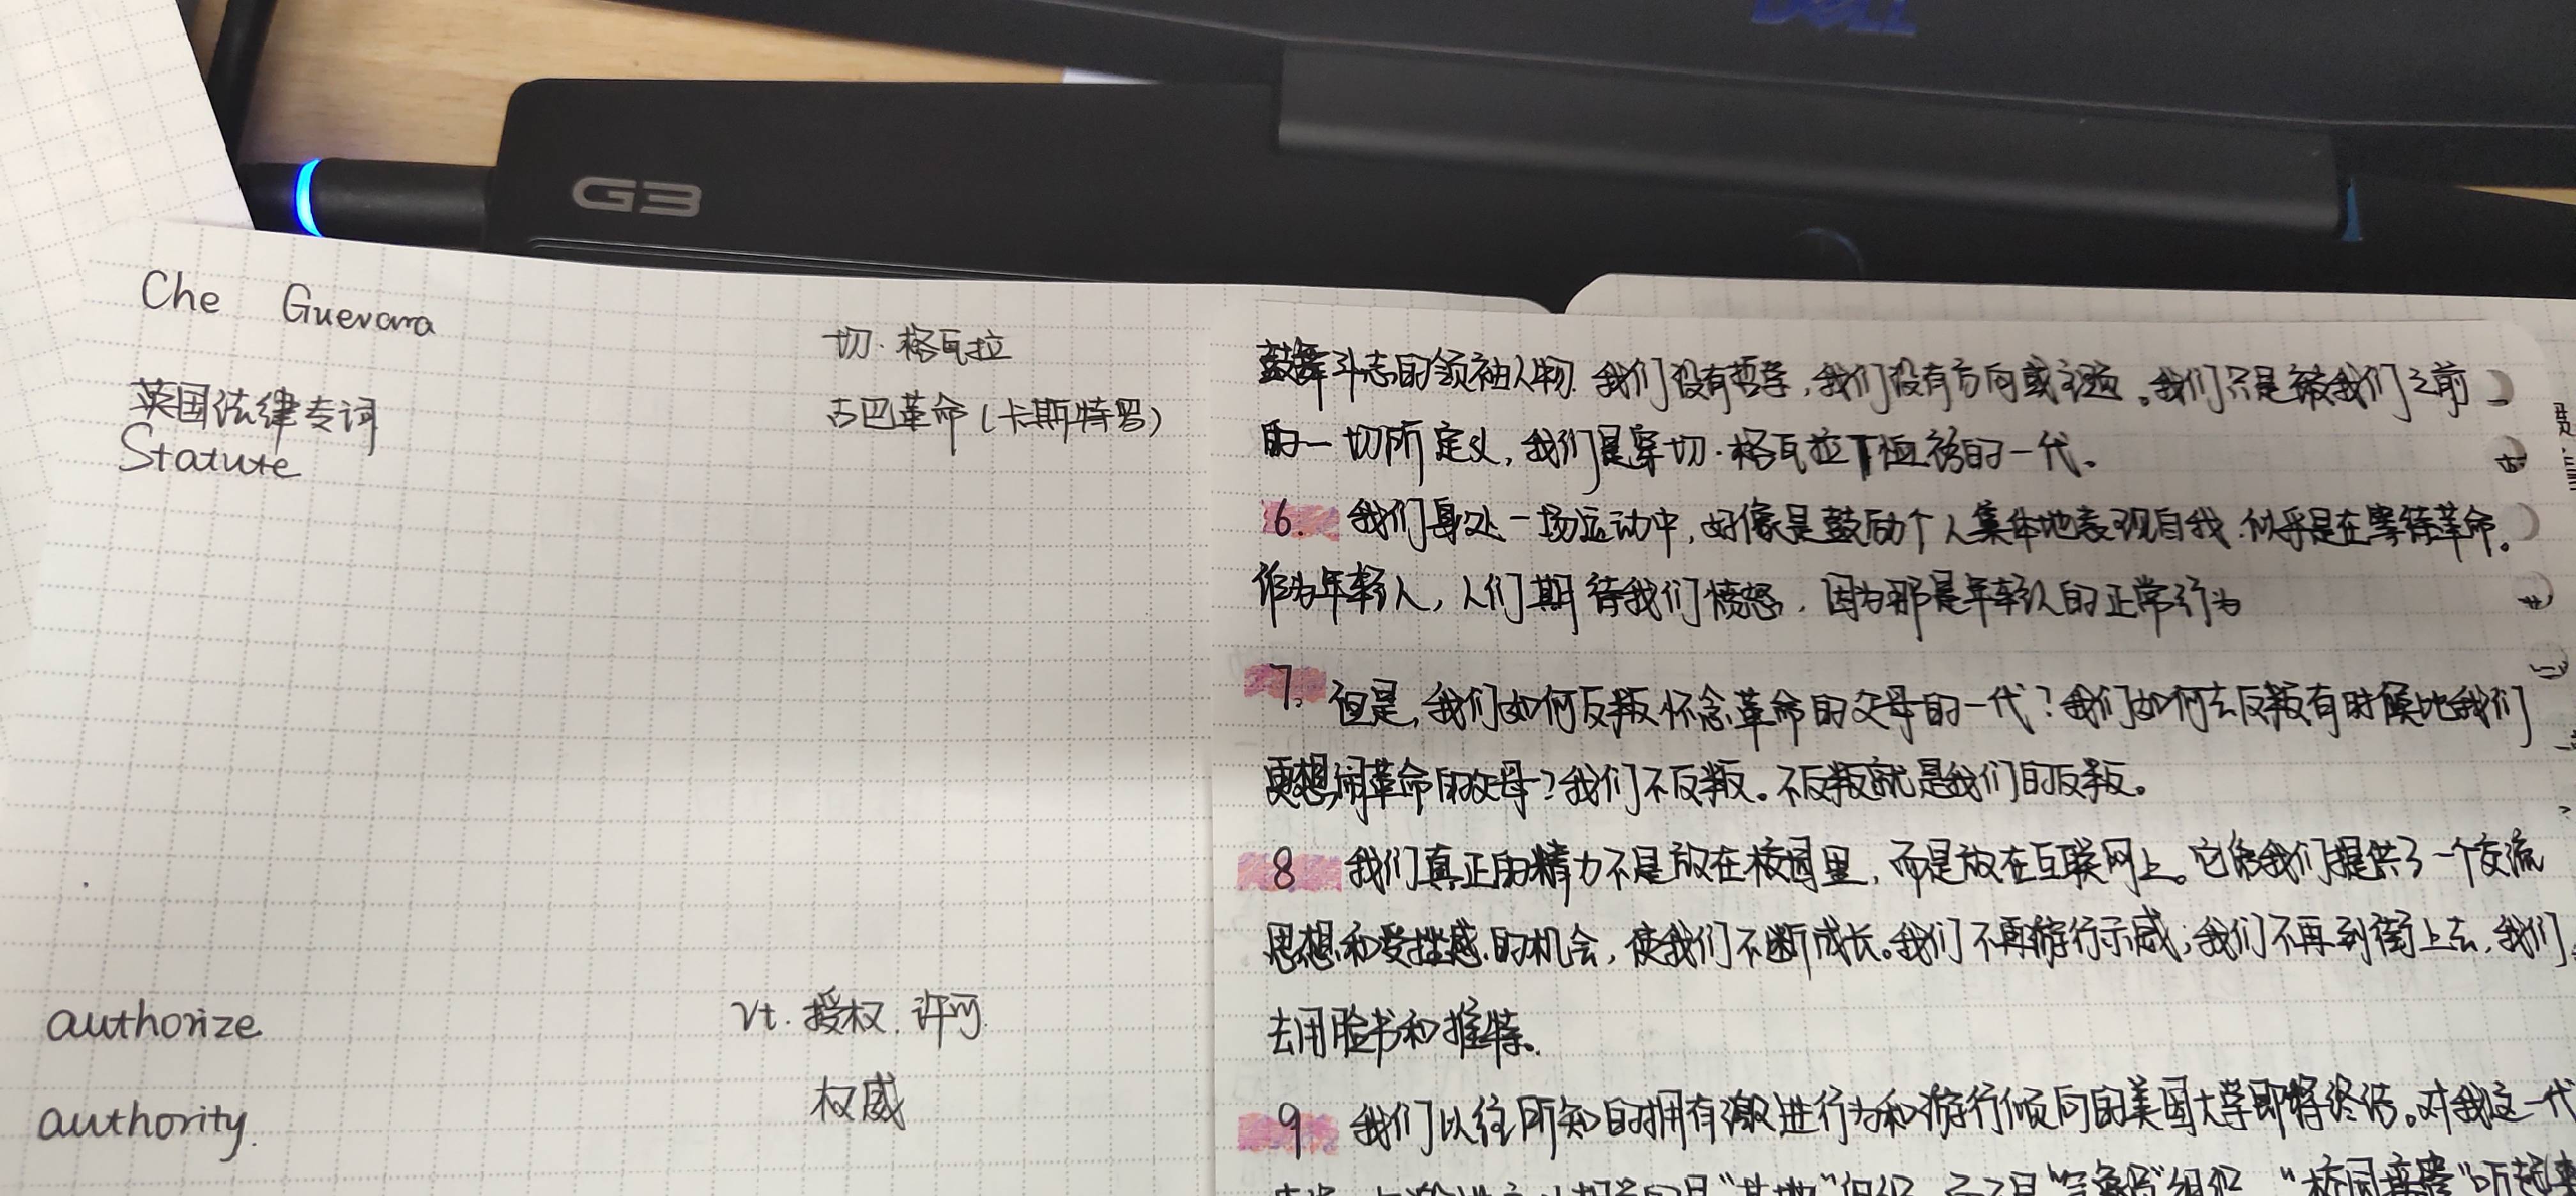 DELL
G3
Che Guevara
切·格瓦拉
英国法律专词
古巴革命(卡斯特罗)
Statute
authorize
vt. 授权. 许可.
authority.
权威
鼓舞斗志的领袖人物. 我们没有哲学, 我们没有方向或主題。我们只是被我们之前
的一切所定义, 我们是穿切·格瓦拉T恤衫的一代。
6. 我们身处一场运动中, 好像是鼓励个人集体地表现自我. 似乎是在等待革命。
作为年轻人, 人们期待我们愤怒, 因为那是年轻人的正常行为
7. 但是, 我们如何反叛怀念革命的父母的一代? 我们如何去反叛有时候比我们
更想闹革命的父母? 我们不反叛。不反叛就是我们的反叛。
8 我们真正的精力不是放在校园里, 而是放在互联网上。它给我们提供了一个交流
思想和受挫感的机会, 使我们不断成长。我们不再游行示威; 我们不再到街上去, 我们
去用脸书和推特。
9 我们以往所知的拥有激进行为和游行倾向的美国大学即将终结。对我这一代